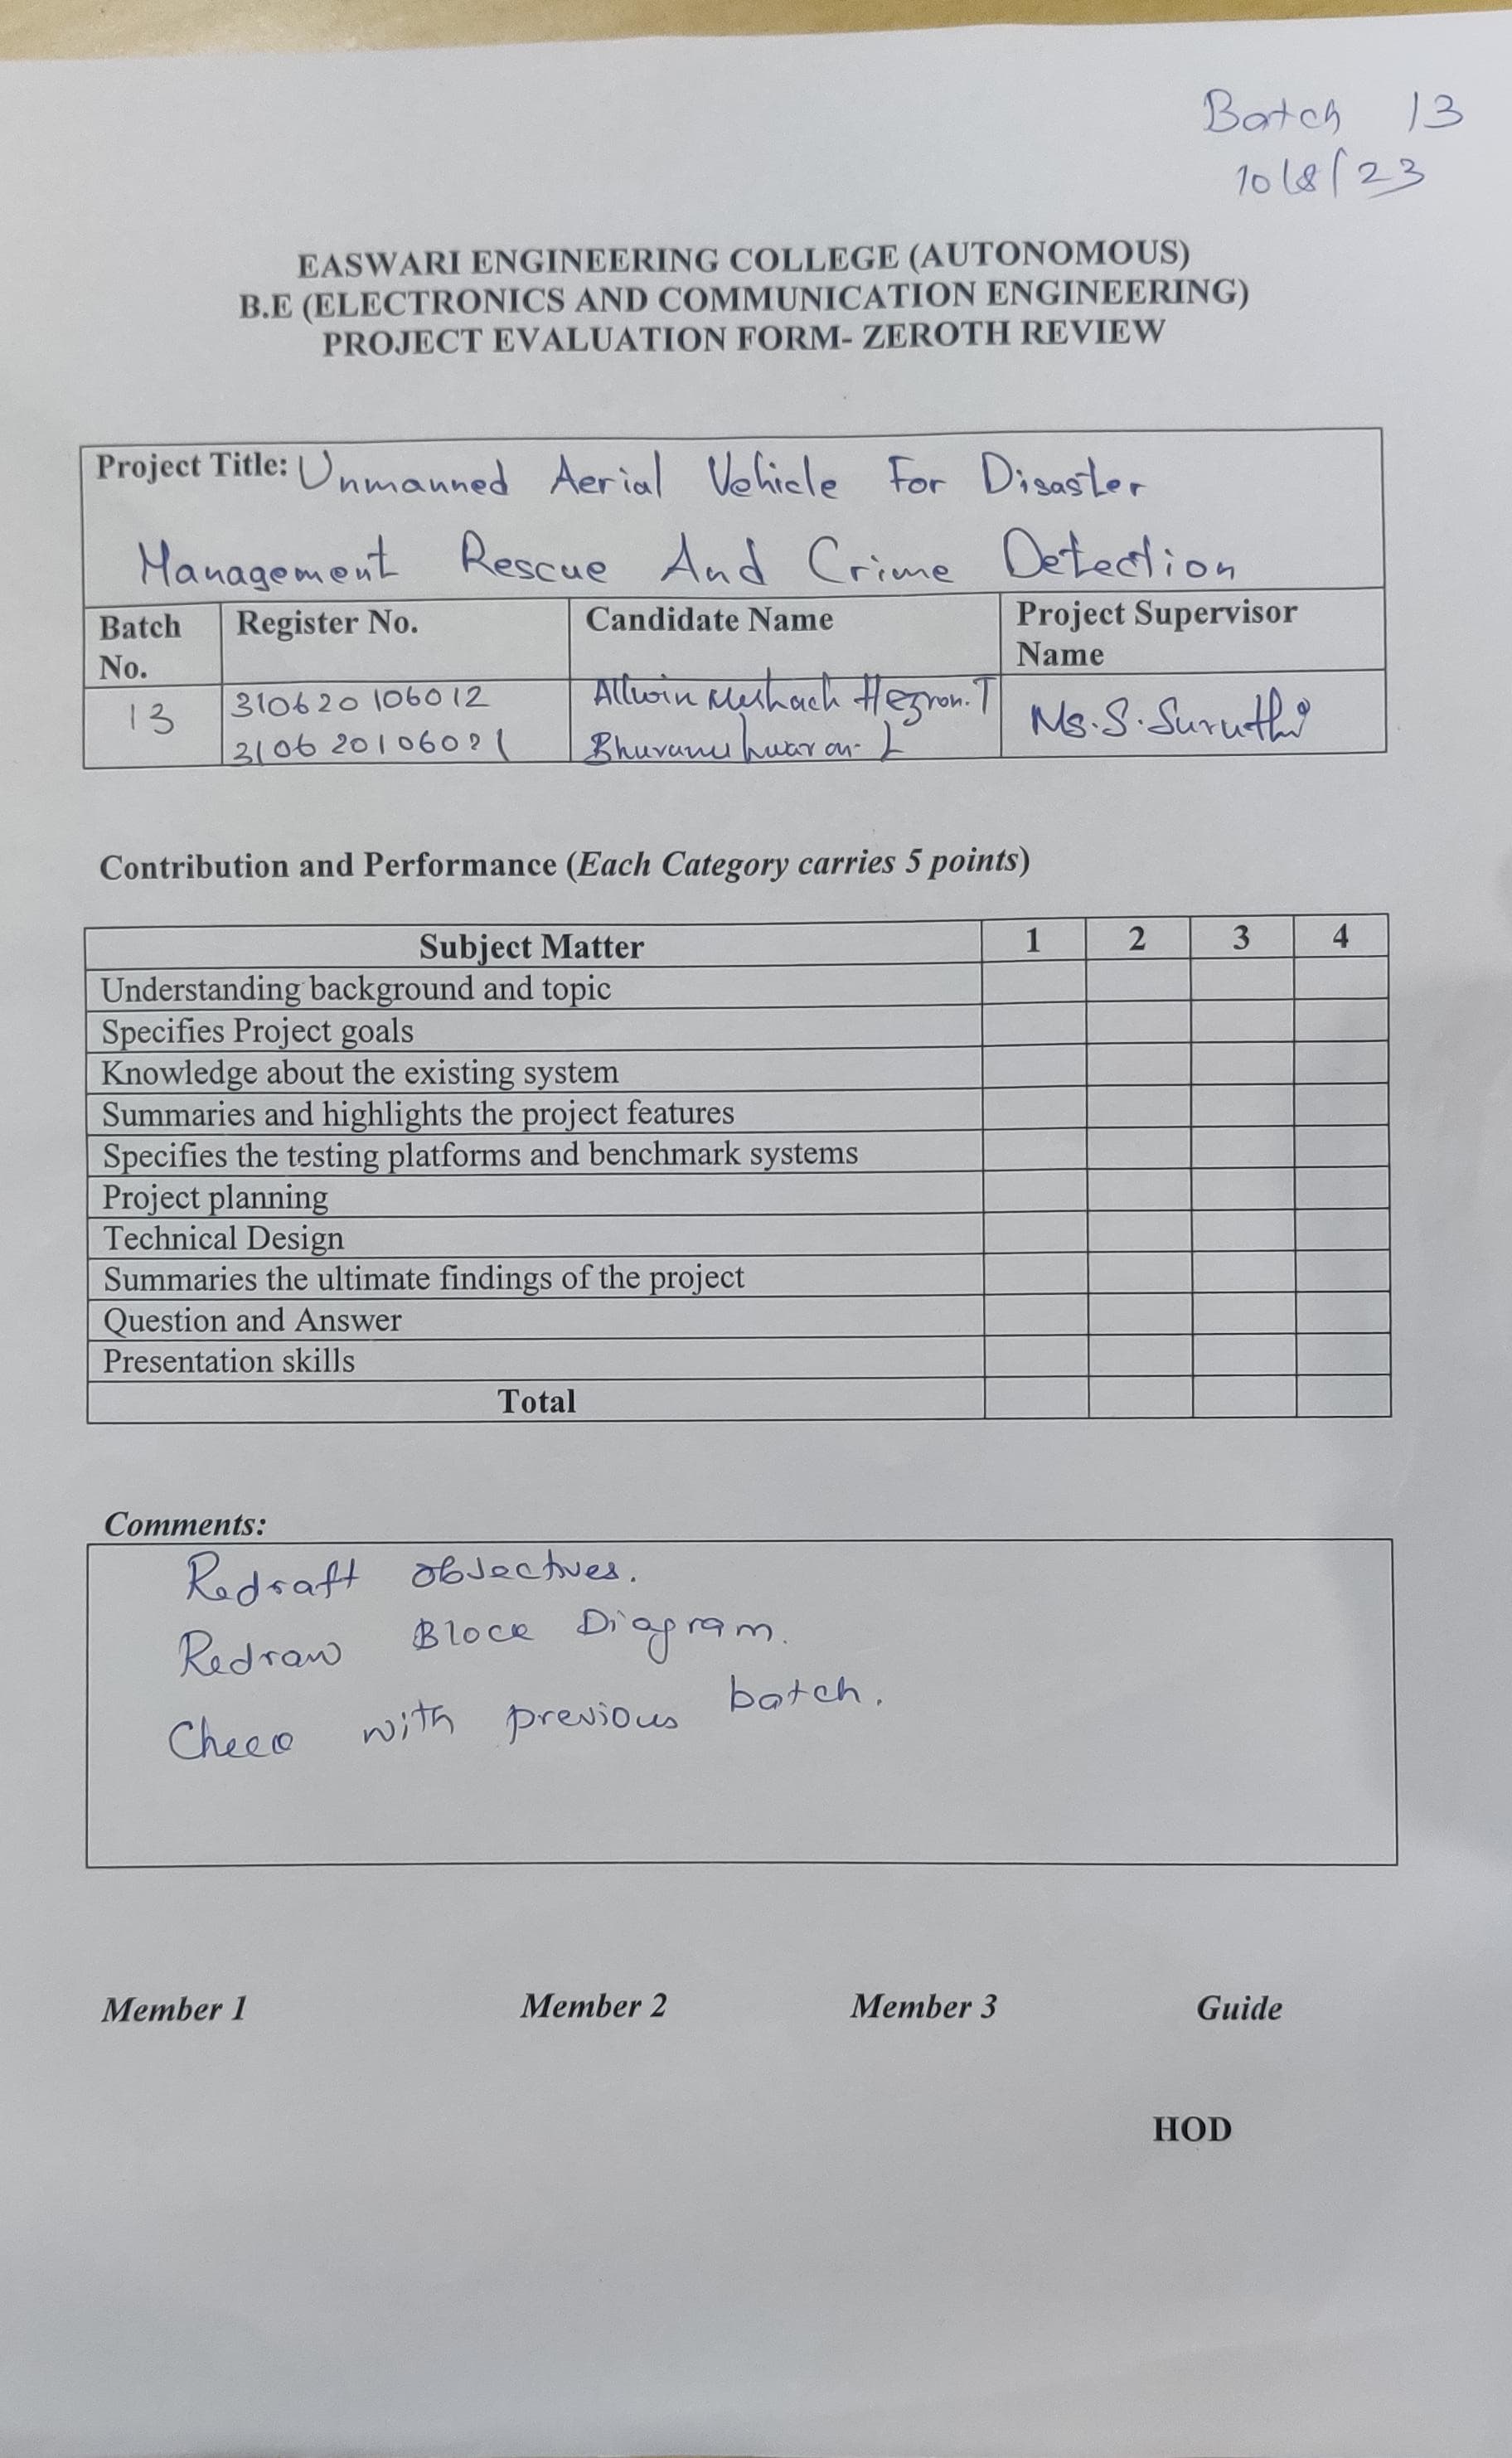 Batch 13
10/8/23
EASWARI ENGINEERING COLLEGE (AUTONOMOUS)
B.E (ELECTRONICS AND COMMUNICATION ENGINEERING)
PROJECT EVALUATION FORM- ZEROTH REVIEW
Project Title: Unmanned Aerial Vehicle For Disaster
Management Rescue And Crime Detection
Batch No. Register No. Candidate Name Project Supervisor Name
13 310620106012 Allwin Meshach Hezron. T Ms. S. Suruthi
310620106021 Bhuvaneshwaran. L
Contribution and Performance (Each Category carries 5 points)
Subject Matter 1 2 3 4
Understanding background and topic
Specifies Project goals
Knowledge about the existing system
Summaries and highlights the project features
Specifies the testing platforms and benchmark systems
Project planning
Technical Design
Summaries the ultimate findings of the project
Question and Answer
Presentation skills
Total
Comments:
Redraft objectives.
Redraw Block Diagram.
Check with previous batch.
Member 1 Member 2 Member 3 Guide
HOD